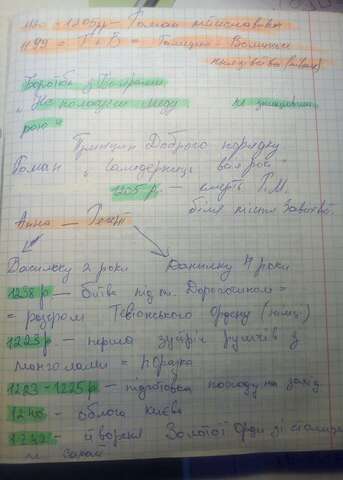 1205р — Роман Мстиславич
1199 = Г + В = Галицько - Волинське
князівство
Боротьба з Боярами
"Не подавуси меду не знищивши
рою"
Принцип Доброго порядку
Роман "Самодержець всея Русі"
1205 р — смерть Р.М.
біля міста Завихост
Анна — Регент
Васильку 2 роки Данилку 4 роки
1238 р — битва під м. Дорогочином =
= розгром Тевтонського Ордену (німці)
1223 р — перша зустріч русичів з
монголами = поразка
1223-1225 р — підготовка походу на захід
1240 — облога Києва
1242 — утворення Золотої Орди зі столицею
м Сарай